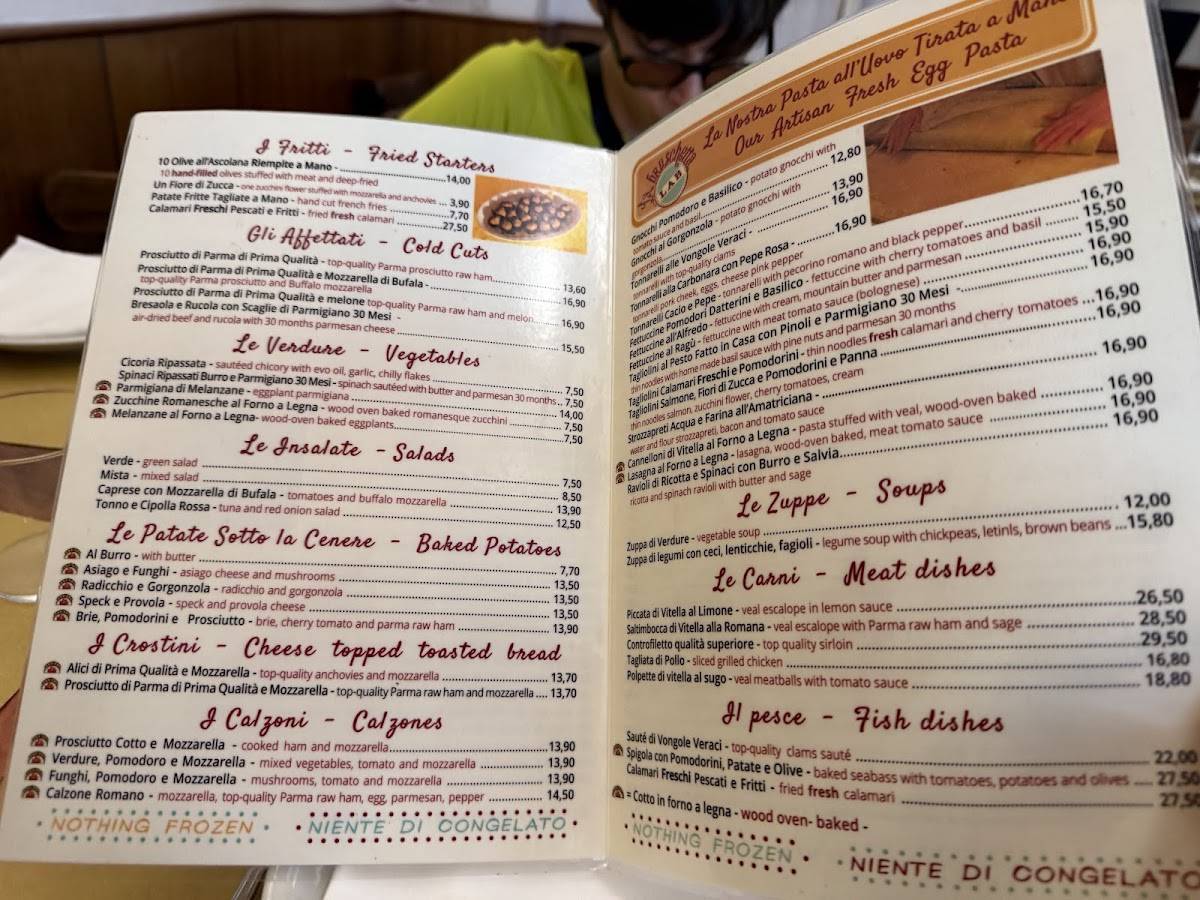 I Fritti - Fried Starters
10 Olive all'Ascolana Riempite a Mano - ..... 14,00
10 hand-filled olives stuffed with meat and deep-fried
Un Fiore di Zucca - one zucchini flower stuffed with mozzarella and anchovies ... 3,90
Patate Fritte Tagliate a Mano - hand cut french fries ..... 7,70
Calamari Freschi Pescati e Fritti - fried fresh calamari ..... 27,50
Gli Affettati - Cold Cuts
Prosciutto di Parma di Prima Qualità - top-quality Parma prosciutto raw ham..... 13,60
Prosciutto di Parma di Prima Qualità e Mozzarella di Bufala -
top-quality Parma prosciutto and Buffalo mozzarella ..... 16,90
Prosciutto di Parma di Prima Qualità e melone top-quality Parma raw ham and melon..... 16,90
Bresaola e Rucola con Scaglie di Parmigiano 30 Mesi -
air-dried beef and rucola with 30 months parmesan cheese ..... 15,50
Le Verdure - Vegetables
Cicoria Ripassata - sautéed chicory with evo oil, garlic, chilly flakes ..... 7,50
Spinaci Ripassati Burro e Parmigiano 30 Mesi - spinach sautéed with butter and parmesan 30 months .. 7,50
Parmigiana di Melanzane - eggplant parmigiana ..... 14,00
Zucchine Romanesche al Forno a Legna - wood oven baked romanesque zucchini ..... 7,50
Melanzane al Forno a Legna- wood-oven baked eggplants..... 7,50
Le Insalate - Salads
Verde - green salad ..... 7,50
Mista - mixed salad ..... 8,50
Caprese con Mozzarella di Bufala - tomatoes and buffalo mozzarella ..... 13,90
Tonno e Cipolla Rossa - tuna and red onion salad ..... 12,50
Le Patate Sotto la Cenere - Baked Potatoes
Al Burro - with butter ..... 7,70
Asiago e Funghi - asiago cheese and mushrooms ..... 13,50
Radicchio e Gorgonzola - radicchio and gorgonzola ..... 13,50
Speck e Provola - speck and provola cheese ..... 13,50
Brie, Pomodorini e Prosciutto - brie, cherry tomato and parma raw ham ..... 13,90
I Crostini - Cheese topped toasted bread
Alici di Prima Qualità e Mozzarella - top-quality anchovies and mozzarella ..... 13,70
Prosciutto di Parma di Prima Qualità e Mozzarella - top-quality Parma raw ham and mozzarella .... 13,70
I Calzoni - Calzones
Prosciutto Cotto e Mozzarella - cooked ham and mozzarella..... 13,90
Verdure, Pomodoro e Mozzarella - mixed vegetables, tomato and mozzarella ..... 13,90
Funghi, Pomodoro e Mozzarella - mushrooms, tomato and mozzarella ..... 13,90
Calzone Romano - mozzarella, top-quality Parma raw ham, egg, parmesan, pepper ..... 14,50
NOTHING FROZEN · NIENTE DI CONGELATO
La Nostra Pasta all'Uovo Tirata a Mano
Our Artisan Fresh Egg Pasta
LAB
Gnocchi Pomodoro e Basilico - potato gnocchi with
tomato sauce and basil..... 12,80
Gnocchi al Gorgonzola - potato gnocchi with
gorgonzola..... 13,90
Tonnarelli alle Vongole Veraci -
tonnarelli with top-quality clams ..... 16,90
Tonnarelli alla Carbonara con Pepe Rosa -
tonnarelli pork cheek, eggs, cheese pink pepper ..... 16,90
Tonnarelli Cacio e Pepe - tonnarelli with pecorino romano and black pepper..... 16,70
Fettuccine Pomodori Datterini e Basilico - fettuccine with cherry tomatoes and basil ..... 15,50
Fettuccine all'Alfredo - fettuccine with cream, mountain butter and parmesan ..... 15,90
Fettuccine al Ragù - fettuccine with meat tomato sauce (bolognese) ..... 16,90
Tagliolini al Pesto Fatto in Casa con Pinoli e Parmigiano 30 Mesi -..... 16,90
thin noodles with home made basil sauce with pine nuts and parmesan 30 months
Tagliolini Calamari Freschi e Pomodorini - thin noodles fresh calamari and cherry tomatoes ...16,90
Tagliolini Salmone, Fiori di Zucca e Pomodorini e Panna ..... 16,90
thin noodles salmon, zucchini flower, cherry tomatoes, cream
Strozzapreti Acqua e Farina all'Amatriciana - ..... 16,90
water and flour strozzapreti, bacon and tomato sauce
Cannelloni di Vitella al Forno a Legna - pasta stuffed with veal, wood-oven baked ..... 16,90
Lasagna al Forno a Legna - lasagna, wood-oven baked, meat tomato sauce ..... 16,90
Ravioli di Ricotta e Spinaci con Burro e Salvia..... 16,90
ricotta and spinach ravioli with butter and sage
Le Zuppe - Soups
Zuppa di Verdure - vegetable soup ..... 12,00
Zuppa di legumi con ceci, lenticchie, fagioli - legume soup with chickpeas, letinls, brown beans ...15,80
Le Carni - Meat dishes
Piccata di Vitella al Limone - veal escalope in lemon sauce ..... 26,50
Saltimbocca di Vitella alla Romana - veal escalope with Parma raw ham and sage ..... 28,50
Controfiletto qualità superiore - top quality sirloin ..... 29,50
Tagliata di Pollo - sliced grilled chicken ..... 16,80
Polpette di vitella al sugo - veal meatballs with tomato sauce ..... 18,80
Il pesce - Fish dishes
Sauté di Vongole Veraci - top-quality clams sauté ..... 22,00
Spigola con Pomodorini, Patate e Olive - baked seabass with tomatoes, potatoes and olives ..... 27,50
Calamari Freschi Pescati e Fritti - fried fresh calamari ..... 27,50
= Cotto in forno a legna - wood oven- baked -
NOTHING FROZEN · NIENTE DI CONGELATO